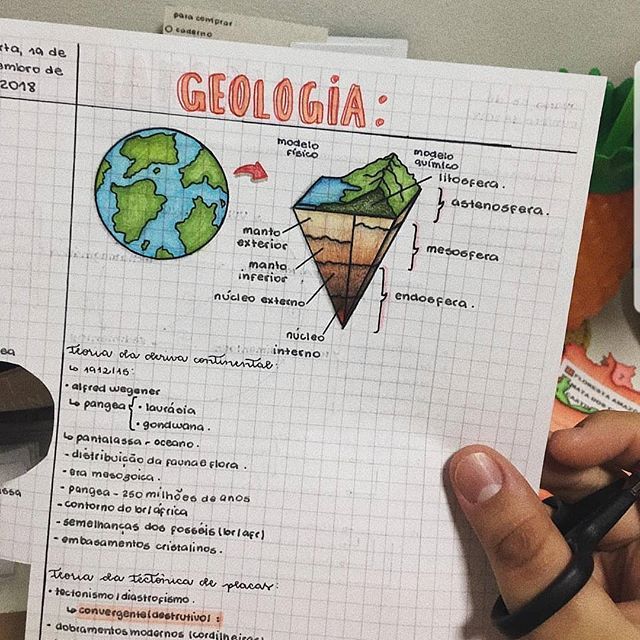 para comprar
caderno
19 de
2018
GEOLOGIA:
modelo
físico
modelo
químico
litosfera.
astenosfera.
manto
exterior
mesosfera
manto
inferior
núcleo externo
endosfera.
núcleo
interno
Teoria da deriva continental:
↳ 1912/15:
• alfred wegener
↳ pangea { • laurásia
• gondwana.
↳ pantalassa - oceano.
- distribuição da fauna e flora.
- era mesozoica.
- pangea - 250 milhões de anos
- contorno do br/africa
- semelhanças dos fosséis (br/afr)
- embasamentos cristalinos.
Teoria da tectônica de placas:
• tectonismo/diastrofismo.
↳ convergente (destrutivo):
- dobramentos modernos (cordilheiras
FLORESTA
MATA DOS